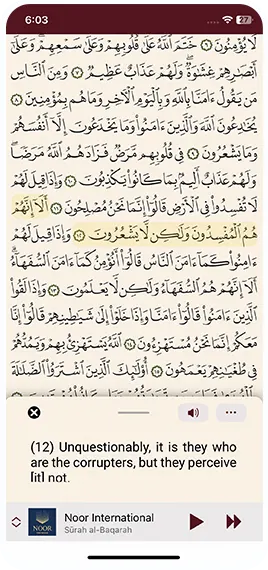 6:03
27
لَا يُؤْمِنُونَ ٦ خَتَمَ اللَّهُ عَلَىٰ قُلُوبِهِمْ وَعَلَىٰ سَمْعِهِمْ وَعَلَىٰ
أَبْصَٰرِهِمْ غِشَٰوَةٌ وَلَهُمْ عَذَابٌ عَظِيمٌ ٧ وَمِنَ النَّاسِ
مَن يَقُولُ ءَامَنَّا بِاللَّهِ وَبِالْيَوْمِ الْآخِرِ وَمَا هُم بِمُؤْمِنِينَ ٨
يُخَٰدِعُونَ اللَّهَ وَالَّذِينَ ءَامَنُوا وَمَا يَخْدَعُونَ إِلَّا أَنفُسَهُمْ
وَمَا يَشْعُرُونَ ٩ فِي قُلُوبِهِم مَّرَضٌ فَزَادَهُمُ اللَّهُ مَرَضًا
وَلَهُمْ عَذَابٌ أَلِيمٌ بِمَا كَانُوا يَكْذِبُونَ ١٠ وَإِذَا قِيلَ لَهُمْ
لَا تُفْسِدُوا فِي الْأَرْضِ قَالُوا إِنَّمَا نَحْنُ مُصْلِحُونَ ١١ أَلَا إِنَّهُمْ
هُمُ الْمُفْسِدُونَ وَلَٰكِن لَّا يَشْعُرُونَ ١٢ وَإِذَا قِيلَ لَهُمْ
ءَامِنُوا كَمَا ءَامَنَ النَّاسُ قَالُوا أَنُؤْمِنُ كَمَا ءَامَنَ السُّفَهَاءُ
أَلَا إِنَّهُمْ هُمُ السُّفَهَاءُ وَلَٰكِن لَّا يَعْلَمُونَ ١٣ وَإِذَا لَقُوا
الَّذِينَ ءَامَنُوا قَالُوا ءَامَنَّا وَإِذَا خَلَوْا إِلَىٰ شَيَٰطِينِهِمْ قَالُوا إِنَّا
مَعَكُمْ إِنَّمَا نَحْنُ مُسْتَهْزِءُونَ ١٤ اللَّهُ يَسْتَهْزِئُ بِهِمْ وَيَمُدُّهُمْ
فِي طُغْيَٰنِهِمْ يَعْمَهُونَ ١٥ أُولَٰئِكَ الَّذِينَ اشْتَرَوُا الضَّلَٰلَةَ
(12) Unquestionably, it is they who
are the corrupters, but they perceive
[it] not.
NOOR
Noor International
Sūrah al-Baqarah